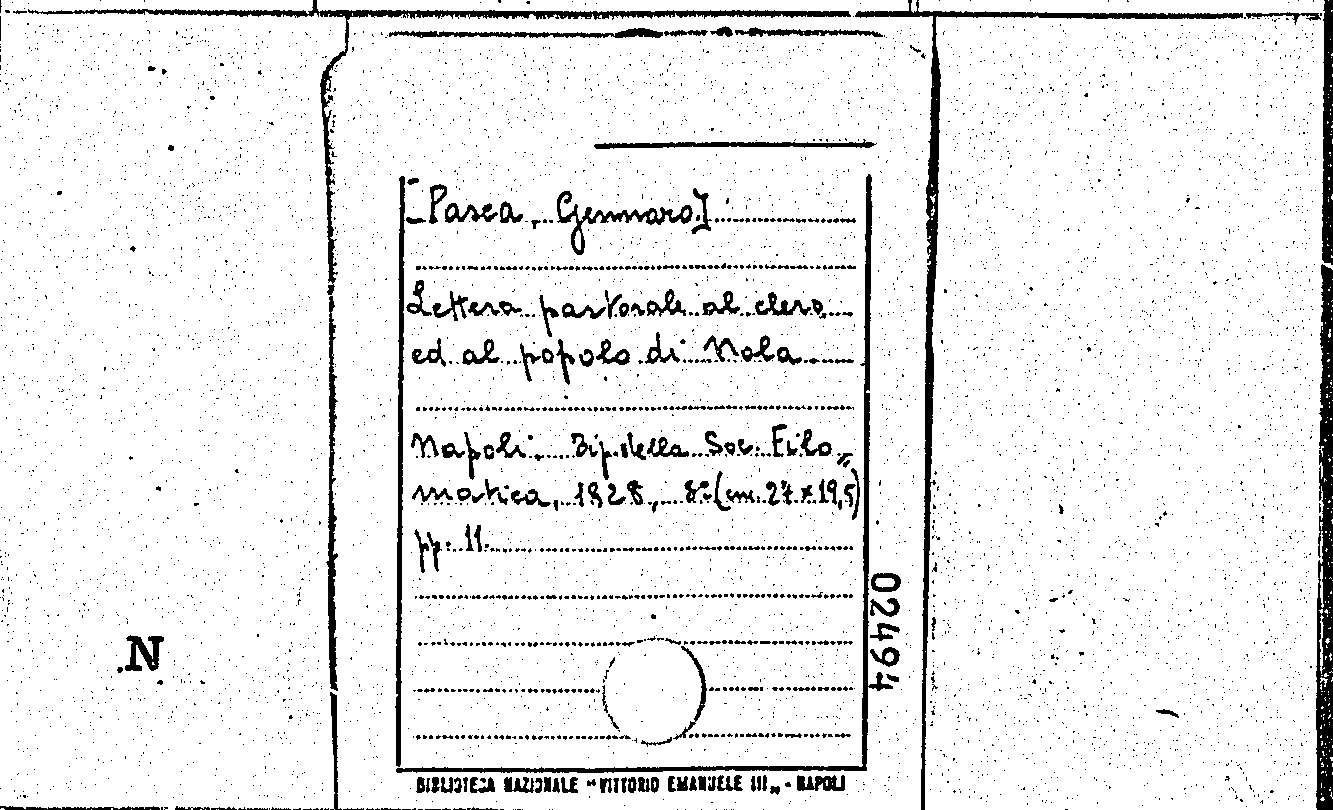 [Pasca, Gennaro]
Lettera pastorale al clero
ed al popolo di Nola
Napoli, Tip. della Soc. Filo„
matica, 1828, 8° (cm. 27 x 19,5)
pp. 11.
02494
N
BIBLIOTECA NAZIONALE "VITTORIO EMANUELE III„ - NAPOLI